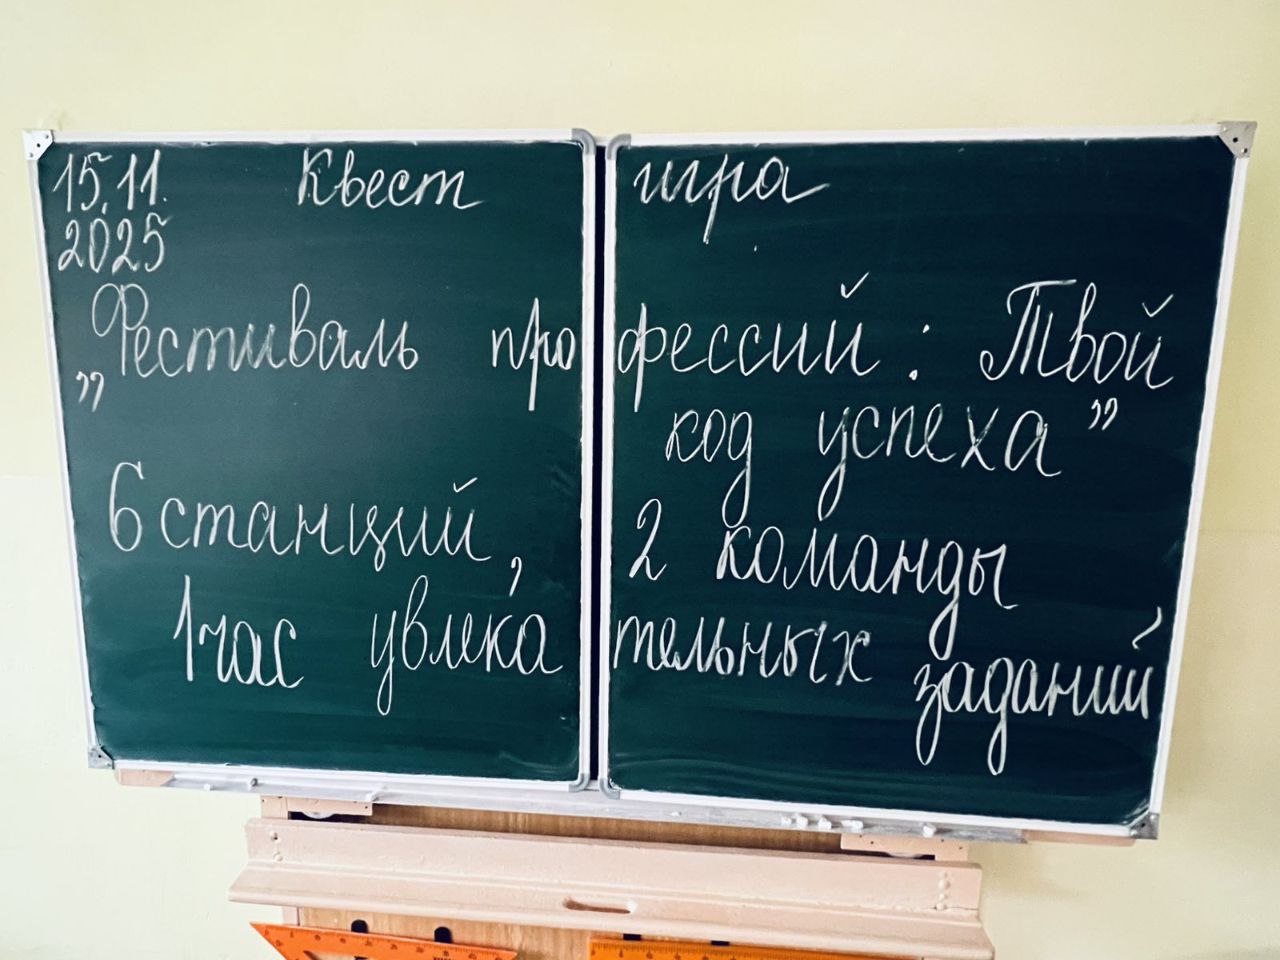 15.11. Квест игра
2025
„Фестиваль профессий: Твой
код успеха”
6 станций, 2 команды
1 час увлекательных заданий